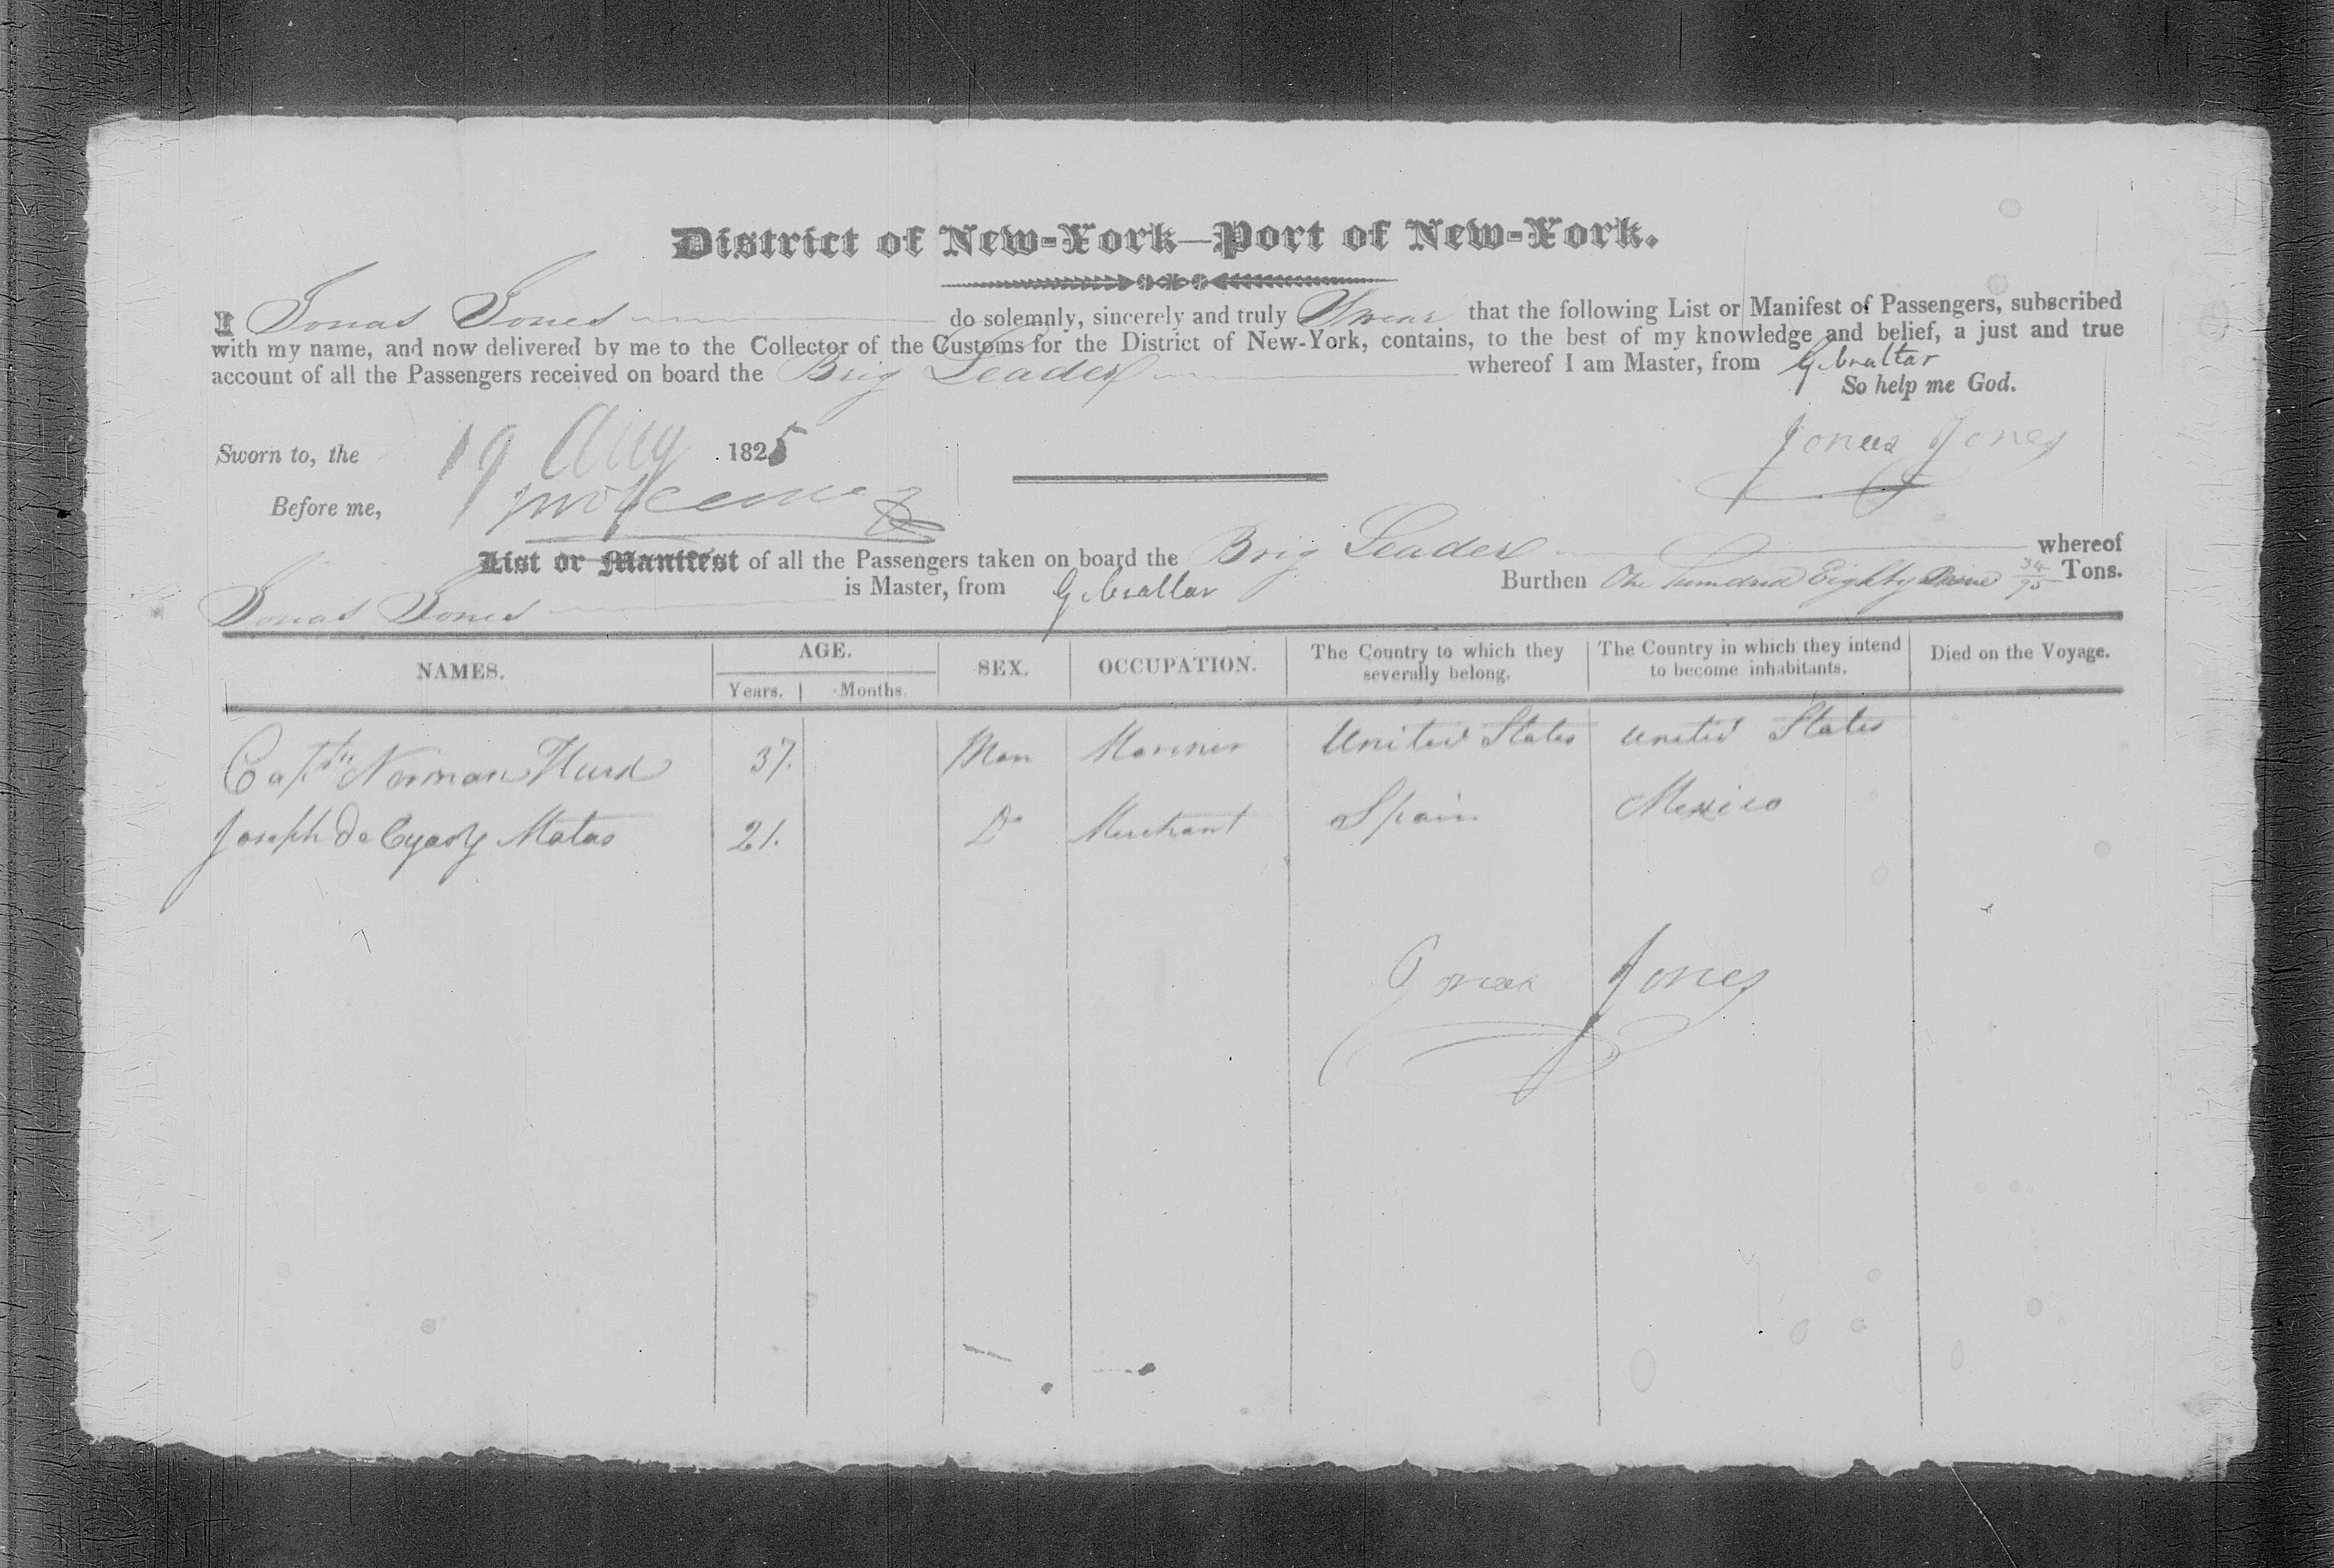 District of New-York—Port of New-York.
I Jonas Jones do solemnly, sincerely and truly Swear that the following List or Manifest of Passengers, subscribed
with my name, and now delivered by me to the Collector of the Customs for the District of New-York, contains, to the best of my knowledge and belief, a just and true
account of all the Passengers received on board the Brig Leader whereof I am Master, from Gibraltar
So help me God.
Sworn to, the 19 Aug 1825
Jonas Jones
Before me,
List or Manifest of all the Passengers taken on board the Brig Leader whereof
Jonas Jones is Master, from Gibraltar Burthen One hundred Eighty Nine 34/95 Tons.
NAMES. AGE. SEX. OCCUPATION. The Country to which they severally belong. The Country in which they intend to become inhabitants. Died on the Voyage.
Years. Months.
Captn Norman Hurd 37. Man Mariner United States United States
Joseph De Matas 21. Do Merchant Spain Mexico
Jonas Jones